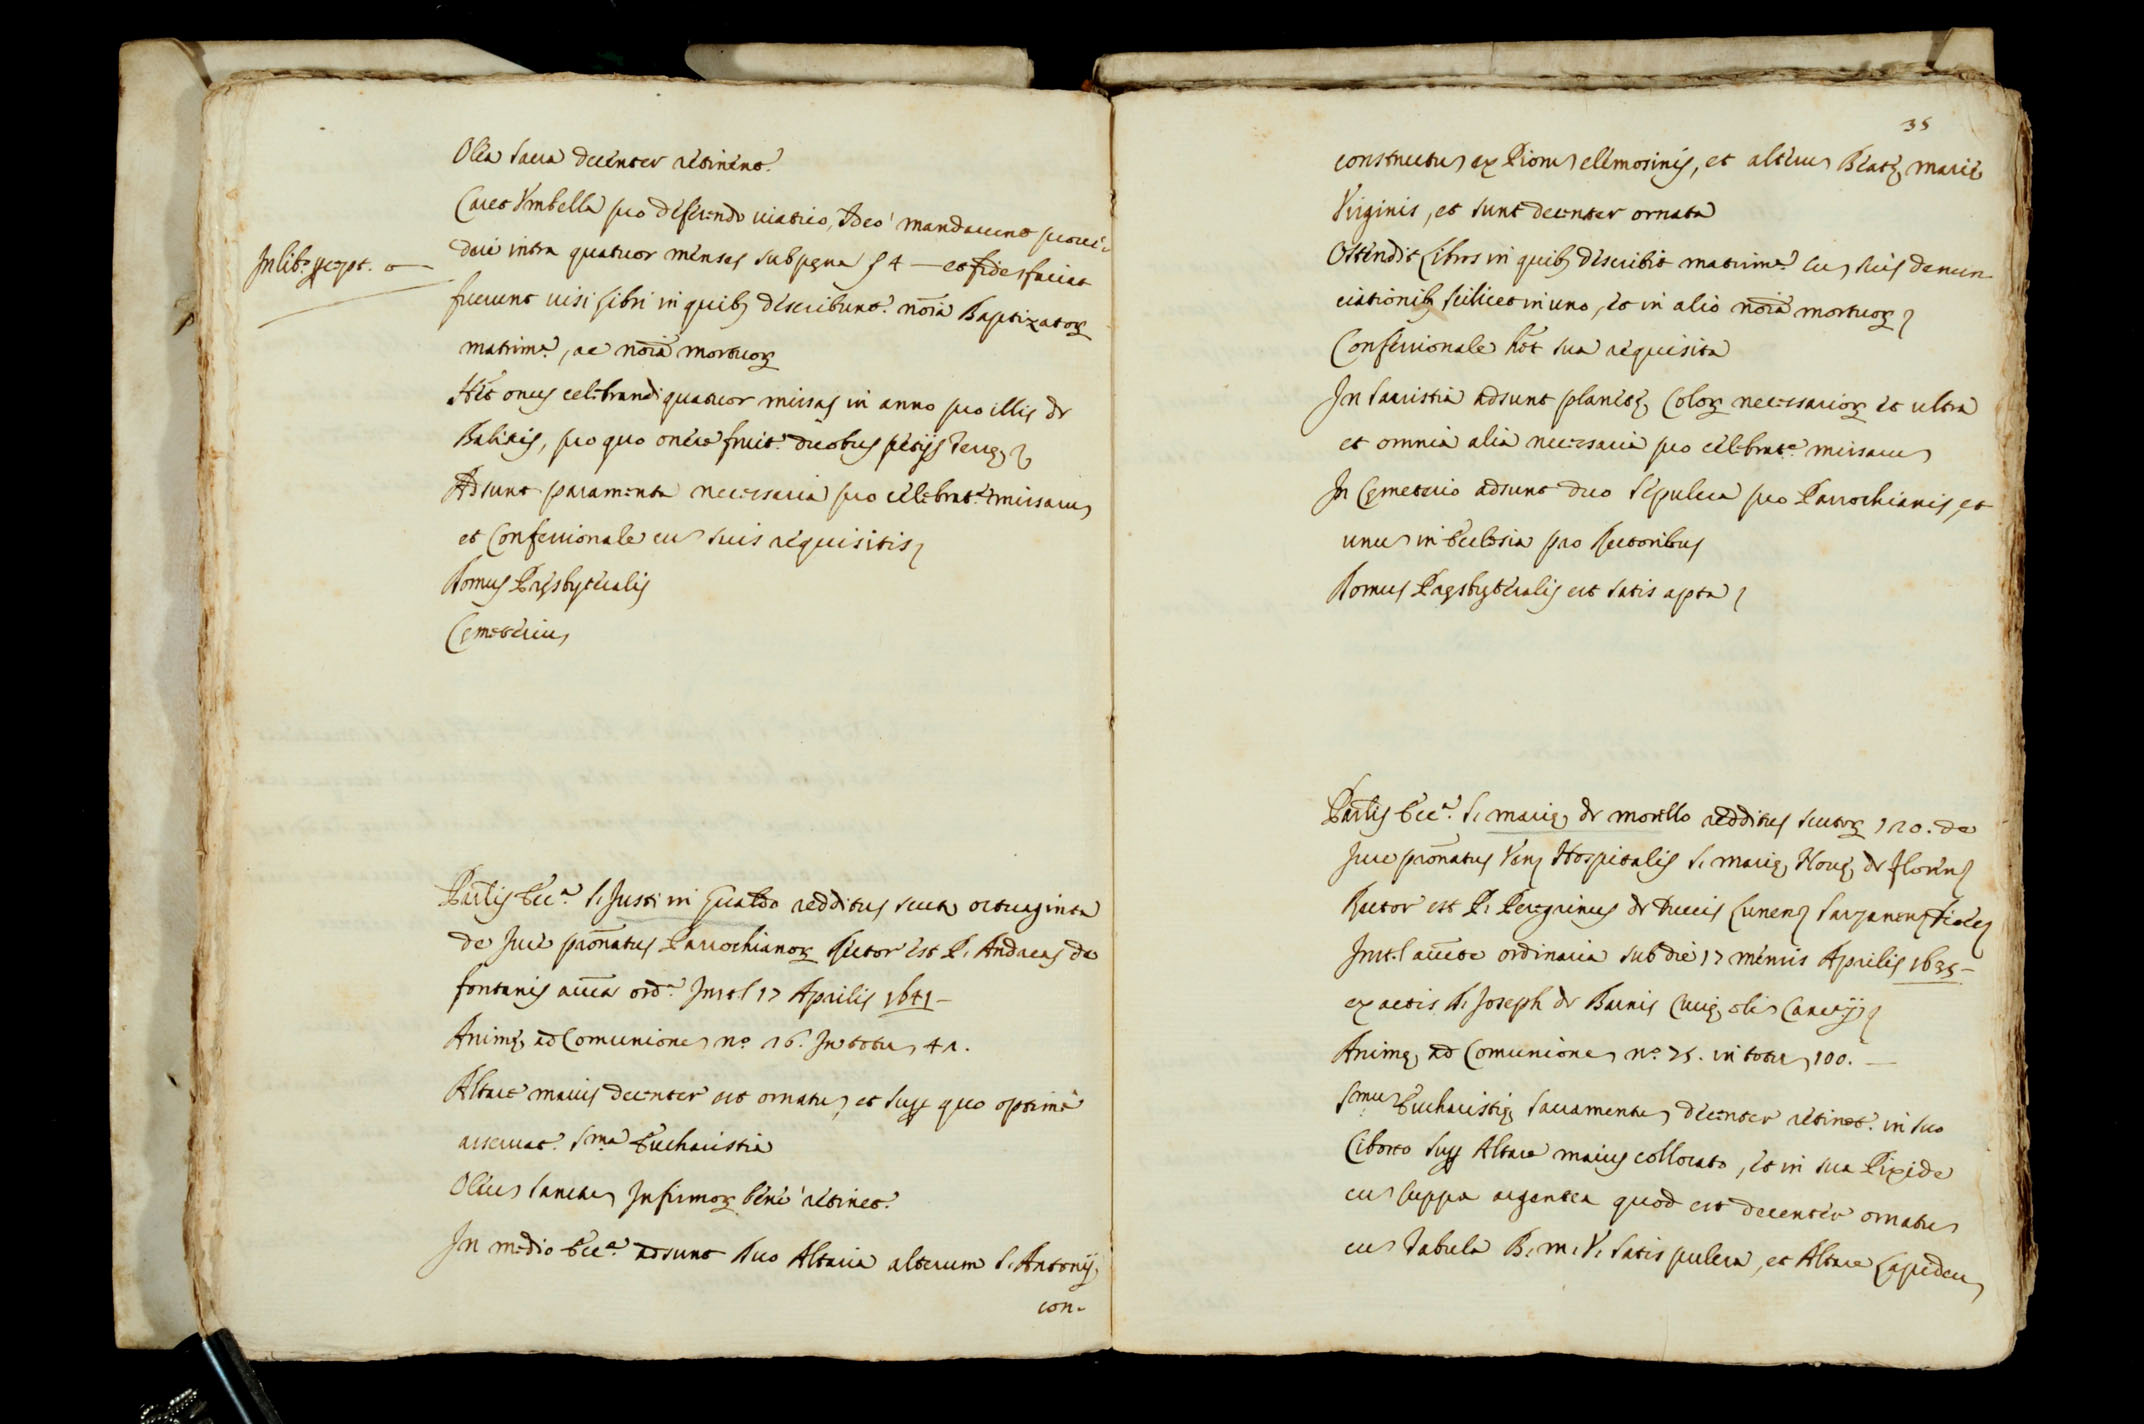 Olea sacra decenter retinent.
Caret Umbella pro deferendo viatico, Ideo mandaverunt provi-
deri intra quatuor menses sub pęna ſ 4 — et fides faciat
In lib.º pręcept. —
fuerunt visi libri in quib; describunt. nõia Baptizatoꝝ
matrim.ª, ac nõia mortuoꝝ
Hẽt onus celebrandi quatuor missas in anno pro illis de
Balinis, pro quo onere fruit. duobus petijs terrę
Adsunt paramenta necessaria pro celebrat.e missaru,
et Confessionale cu, suis requisitis
Domus Pręsbyteralis
Cęmeteriu,
Parlis Ecc.ª S. Justi in Gualdo redditus scuta octuaginta
de Jure prõnatus Parrochianoꝝ Rector est P. Andreas de
fontanis auc̃ta ord.ª Inst.l 17 Aprilis 1641 —
Animę ad Comunione, nº 26. In totu, 42.
Altare maius decenter est ornatu, et supp quo optimè
asservat. S.ma Eucharistia
Oleu, sanctu, Infirmoꝝ bene retinet.
In medio Ecc.ª adsunt duo Altaria alterum S. Antonij
con-
35
constructu, ex Pioru, elemosinis, et alteru, Beatę Marię
Virginis, et sunt decenter ornata
Ostendit Libros in quib; describit matrim.ª cu, suis denun
ciationib; scilicet in uno, et in alio nõia mortuoꝝ
Confessionale hẽt sua requisita
In Sacristia adsunt planetę Coloꝝ necessarioꝝ et ultra
et omnia alia necessaria pro celebrat.e missaru,
In Cęmeterio adsunt duo sepulcra pro Parrochianis, et
unu, in Ecclesia pro Rectoribus
Domus Pręsbyteralis est satis apta
Parlis Ecc.ª S. Marię de Morello redditus scutoꝝ 120. de
Jure prõnatus Ven. Hospitalis S. Marię Novę de Floren.
Rector est P. Peregrinus de Ducis Lunen. Sarzanen.
Inst.l auc̃te ordinaria sub die 17 mensis Aprilis 1635 —
ex actis D. Joseph de Barnis Curię olis Cancrij
Animę ad Comunione, nº 75. in totu, 100. —
S.mu, Eucharistię Sacramentu, decenter retinet. in suo
Ciborio supp Altare maius collocato, et in sua Pixide
cu, cuppa argentea quod est decenter ornatu,
cu, Tabula B. M. V. satis pulcra, et Altare Lapideu,